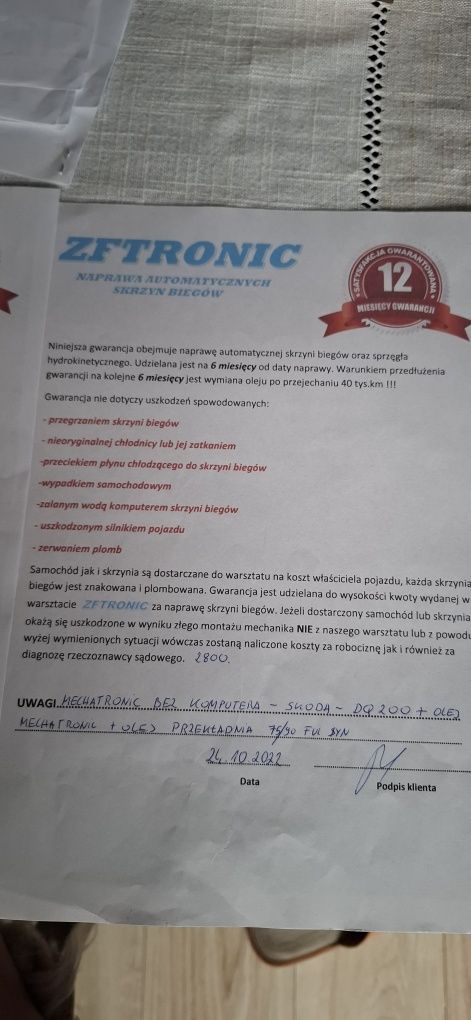 ZFTRONIC
NAPRAWA AUTOMATYCZNYCH
SKRZYN BIEGÓW
SATYSFAKCJA GWARANTOWANA
12
MIESIĘCY GWARANCJI
Niniejsza gwarancja obejmuje naprawę automatycznej skrzyni biegów oraz sprzęgła
hydrokinetycznego. Udzielana jest na 6 miesięcy od daty naprawy. Warunkiem przedłużenia
gwarancji na kolejne 6 miesięcy jest wymiana oleju po przejechaniu 40 tys.km !!!
Gwarancja nie dotyczy uszkodzeń spowodowanych:
- przegrzaniem skrzyni biegów
- nieoryginalnej chłodnicy lub jej zatkaniem
-przeciekiem płynu chłodzącego do skrzyni biegów
-wypadkiem samochodowym
-zalanym wodą komputerem skrzyni biegów
- uszkodzonym silnikiem pojazdu
- zerwaniem plomb
Samochód jak i skrzynia są dostarczane do warsztatu na koszt właściciela pojazdu, każda skrzynia
biegów jest znakowana i plombowana. Gwarancja jest udzielana do wysokości kwoty wydanej w
warsztacie ZFTRONIC za naprawę skrzyni biegów. Jeżeli dostarczony samochód lub skrzynia
okażą się uszkodzone w wyniku złego montażu mechanika NIE z naszego warsztatu lub z powodu
wyżej wymienionych sytuacji wówczas zostaną naliczone koszty za robociznę jak i również za
diagnozę rzeczoznawcy sądowego. 2800.
UWAGI MECHATRONIC BEZ KOMPUTERA - SKODA - DQ200 + OLEJ
MECHATRONIC + OLEJ PRZEKŁADNIA 75/90 FUL SYN
24.10.2022
Data
Podpis klienta